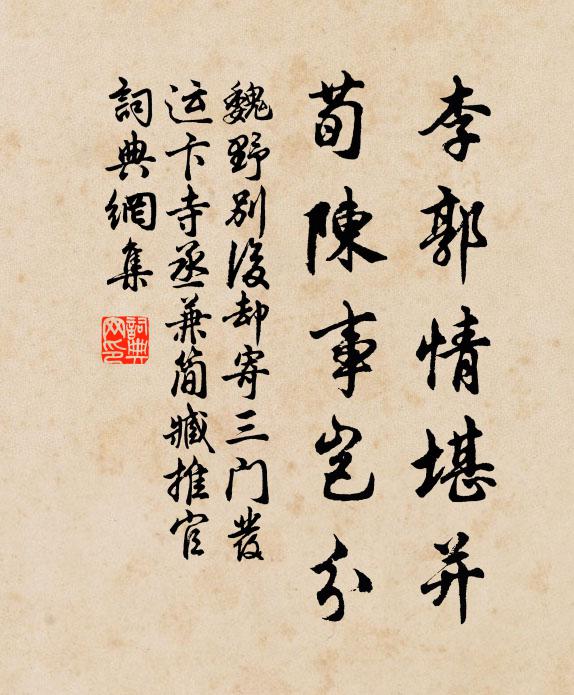 李郭情堪并
荀陳事岂分
魏野别後却寄三门發
运卞寺丞兼简臧推官
詞典網集
詞典
网印